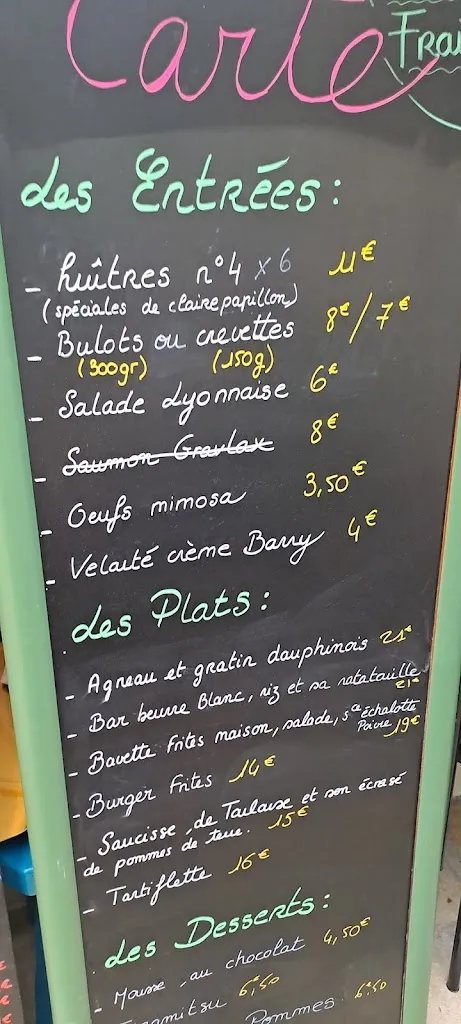 Carte
Frai
des Entrées :
- huîtres n°4 x 6 11€
(spéciales de claire papillon)
- Bulots ou crevettes 8€ / 7€
(300gr) (150g)
- Salade Lyonnaise 6€
- Saumon Gravlax 8€
- Oeufs mimosa 3,50€
- Velouté crème Barry 4€
des Plats :
- Agneau et gratin dauphinois 21€
- Bar beurre Blanc, riz et sa ratataille 21€
- Bavette frites maison, salade, sce échalotte
Poivre 19€
- Burger frites 14€
- Saucisse de Toulouse et son écrasé
de pommes de terre. 15€
- Tartiflette 16€
des Desserts :
- Mousse au chocolat 4,50€
Tiramitsu 6€,50
Pommes 6€50